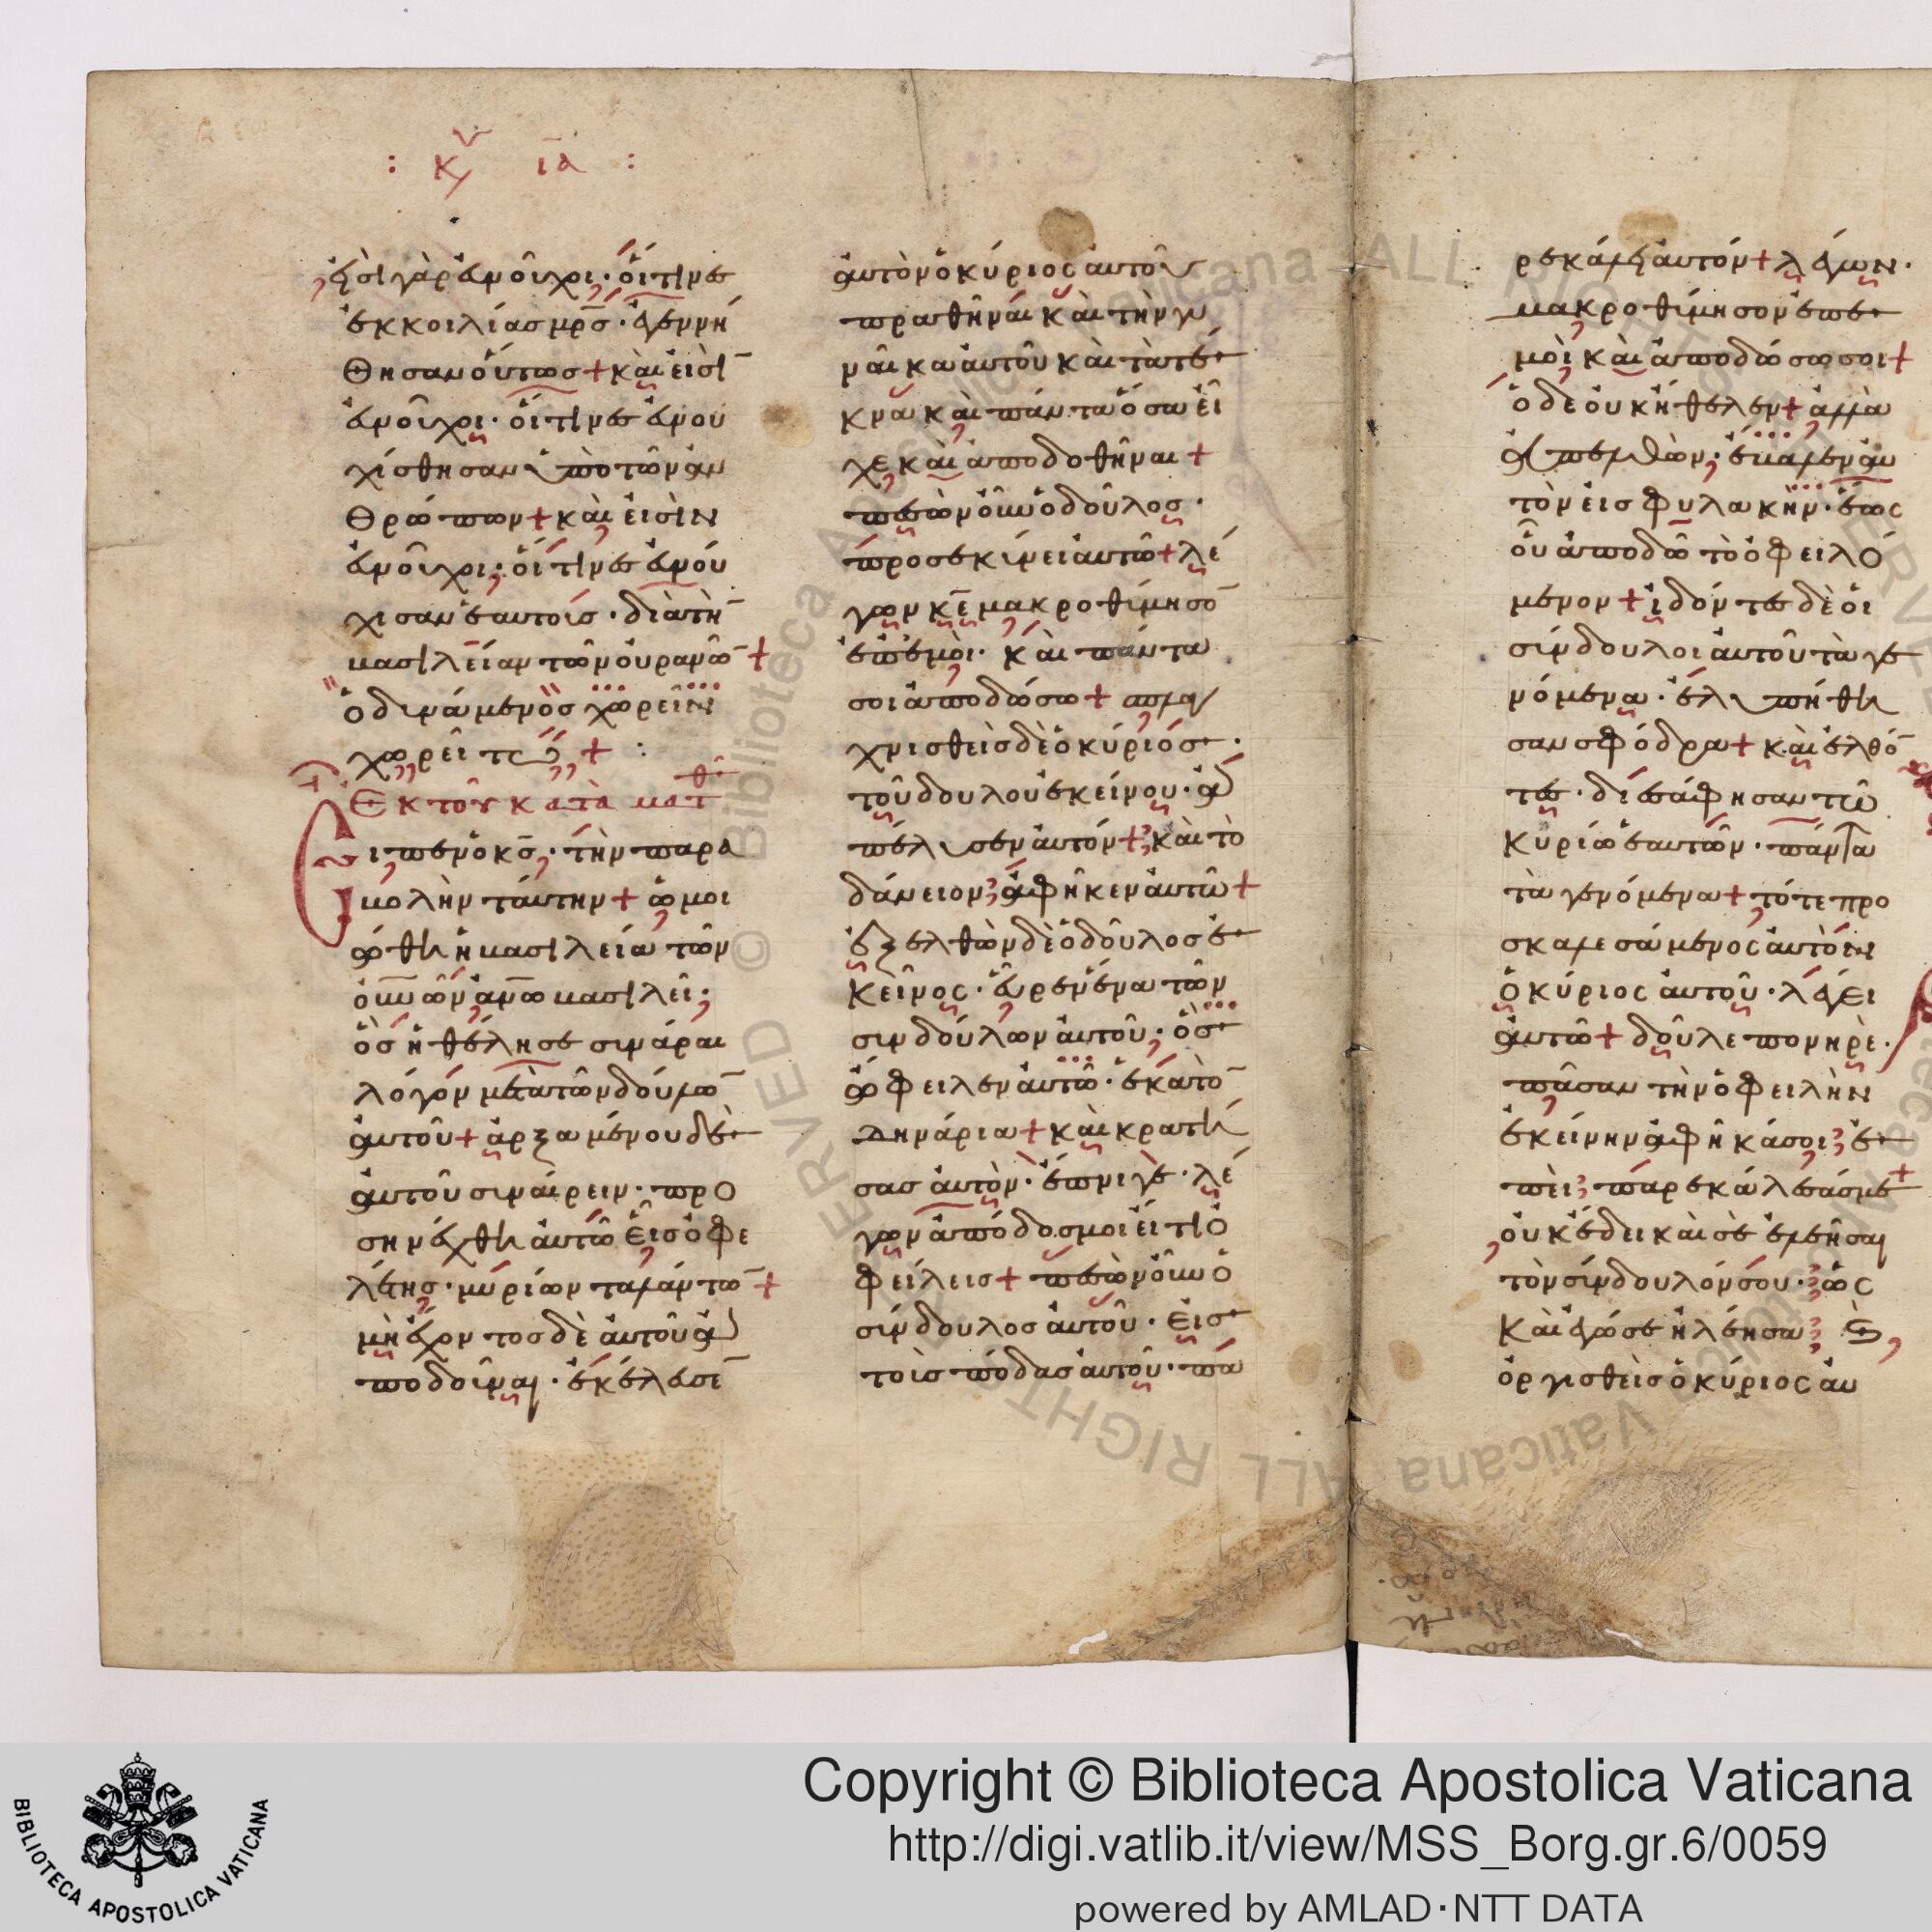 : κυ ια :
εἰσὶ γὰρ εὐνοῦχοι· οἵτινες
ἐκ κοιλίας μρς· ἐγεννή
θησαν οὕτως + καὶ εἰσὶ
εὐνοῦχοι· οἵτινες εὐνου
χίσθησαν ὑπὸ τῶν ἀν
θρώπων + καὶ εἰσὶν
εὐνοῦχοι· οἵτινες εὐνού
χισαν ἑαυτοίς· διὰ τὴ
βασιλείαν τῶν οὐρανῶ +
ὁ δινάμενος χωρεῖν
χωρεῖτω + :
Εκ τοῦ κατὰ ματθ
Ειπεν ὁ κς· τὴν παρα
βολὴν ταύτην + ὡμοι
ώθη ἡ βασιλεία τῶν
οὐνῶν ἀνω βασιλεῖ·
ὃς ἠθέλησε σινάραι
λόγον μετὰ τῶν δούλω
αὐτοῦ + ἀρξαμένου δὲ
αὐτοῦ σιναίρειν· προ
σηνέχθη αὐτῶ εἷς ὀφε
λέτης· μυρίων ταλάντω +
μὴ ἔχοντος δὲ αὐτοῦ ἀ
ποδοῦναι· ἐκέλευσε
αὐτὸν ὁ κύριος αὐτοῦ
πραθῆναι καὶ τὴν γυ
ναῖκα αὐτοῦ καὶ τὰ τέ
κνα καὶ πάντα ὅσα εἶ
χε καὶ ἀποδοθῆναι +
πεσὼν οὖν ὁ δοῦλος·
προσεκίνει αὐτῶ + λέ
γων κε μακροθίμησο
ἐπ' ἐμοὶ· καὶ πάντα
σοι ἀποδώσω + σπλα
χνισθεὶς δὲ ὁ κύριός·
τοῦ δουλου ἐκείνου· ἀ
πέλυσεν αὐτόν + καὶ τὸ
δάνειον ἀφῆκεν αὐτῶ +
ἐξελθὼν δὲ ὁ δοῦλος ἐ
κεῖνος· εὗρεν ἕνα τῶν
σινδούλων αὐτοῦ· ὃς
ώφειλεν αὐτῶ· ἑκατὸ
δηνάρια + καὶ κρατή
σας αὐτὸν· ἔπνιγε· λέ
γων ἀπόδος μοι εἴ τι ὀ
φείλεις + πεσὼν οὖν ὁ
σίνδουλος αὐτοῦ· εἰς
τοὶς πόδας αὐτοῦ· πα
ρεκάλει αὐτόν + λέγων·
μακροθίμησον ἐπ' ἐ
μοὶ καὶ ἀποδώσω σοι +
ὁ δὲ οὐκ ἤθελεν + ἀλλὰ
ἀπελθὼν· ἔβαλεν αὐ
τὸν εἰς φυλακὴν· ἕως
οὗ ἀποδῶ τὸ ὀφειλό
μενον + ἰδόντες δὲ οἱ
σίνδουλοι αὐτοῦ τὰ γε
νόμενα· ἐλυπήθη
σαν σφόδρα + καὶ ἐλθό
τες· διεσάφησαν τῶ
κυρίω ἑαυτῶν· πάντα
τὰ γενόμενα + τότε προ
σκαλεσάμενος αὐτὸν
ὁ κύριος αὐτοῦ· λέγει
αὐτῶ + δοῦλε πονηρὲ·
πᾶσαν τὴν ὀφειλὴν
ἐκείνην ἀφῆκά σοι· ἐ
πεὶ παρεκάλεσάς με +
οὐκ ἔδει καὶ σὲ ἐλεῆσαι
τὸν σίνδουλόν σου· ὡς
καὶ ἐγώ σε ἠλέησα; ϗ
ὀργισθεὶς ὁ κύριος αὐ
Copyright © Biblioteca Apostolica Vaticana
http://digi.vatlib.it/view/MSS_Borg.gr.6/0059
powered by AMLAD·NTT DATA
BIBLIOTECA APOSTOLICA VATICANA